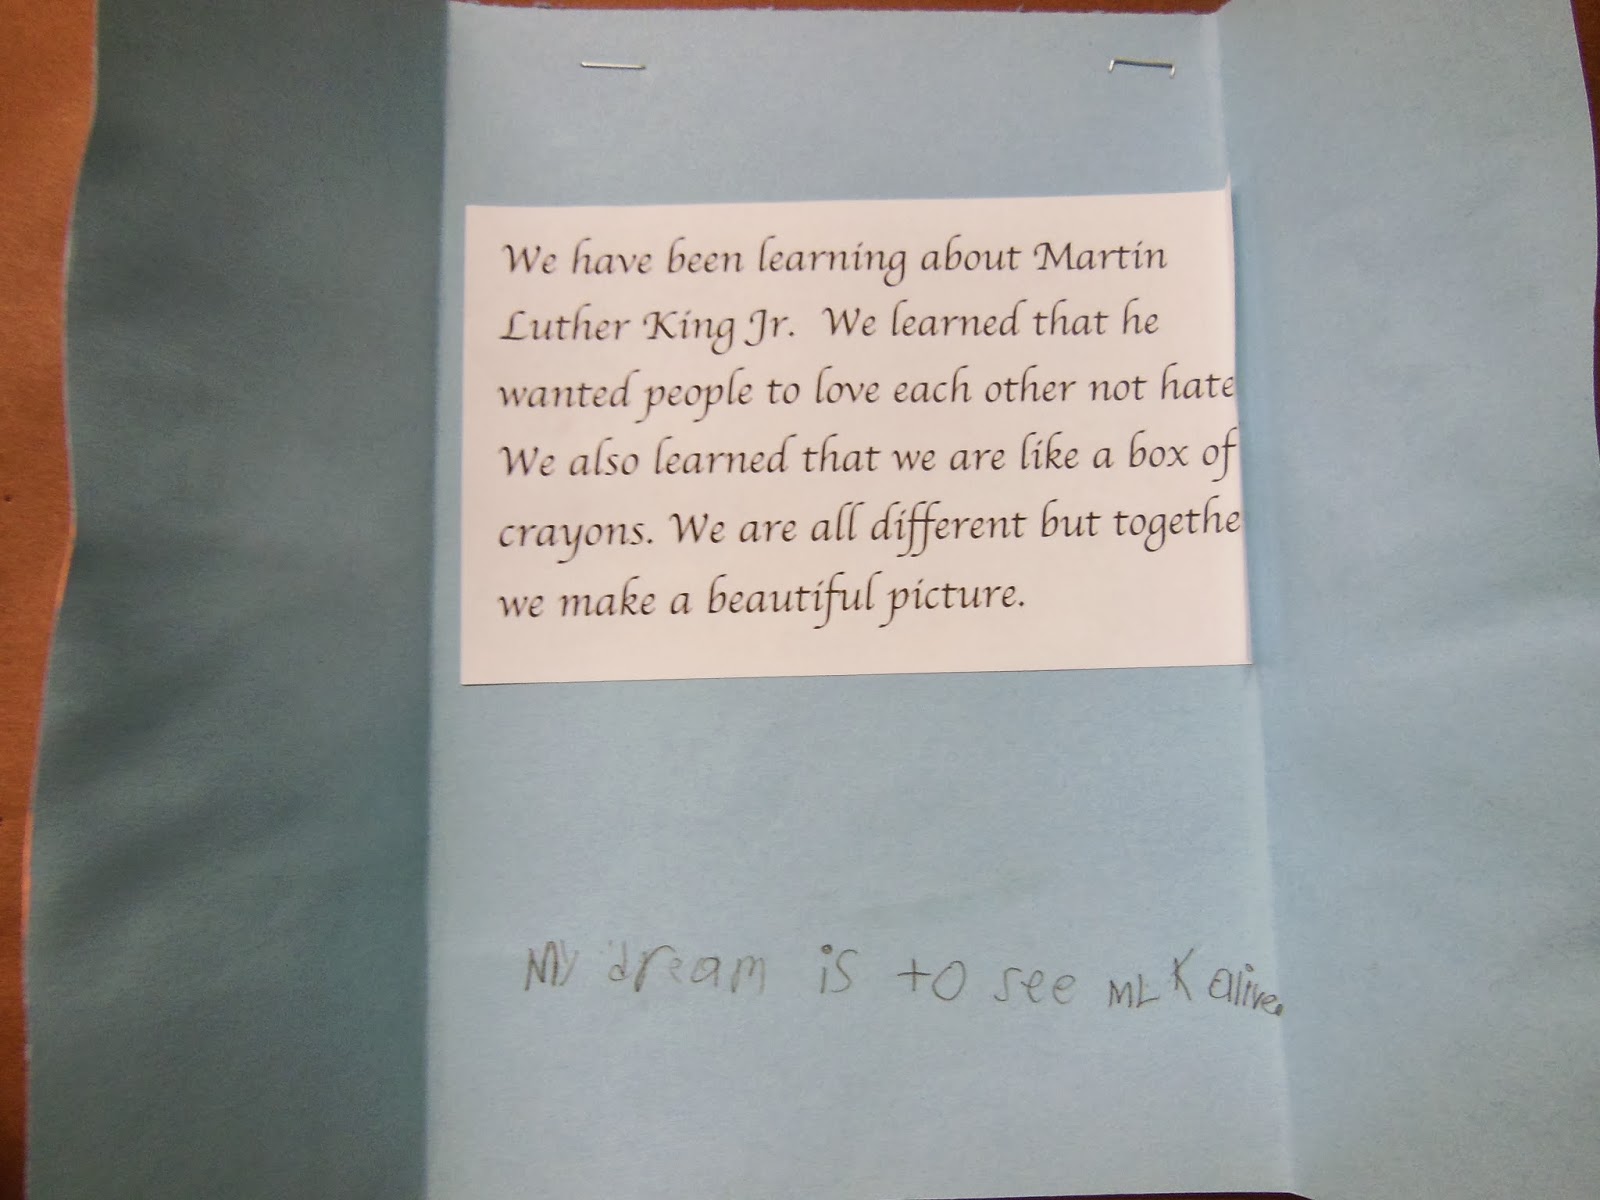 We have been learning about Martin
Luther King Jr.  We learned that he
wanted people to love each other not hate
We also learned that we are like a box of
crayons. We are all different but togethe
we make a beautiful picture.
My dream is to see MLK alive.